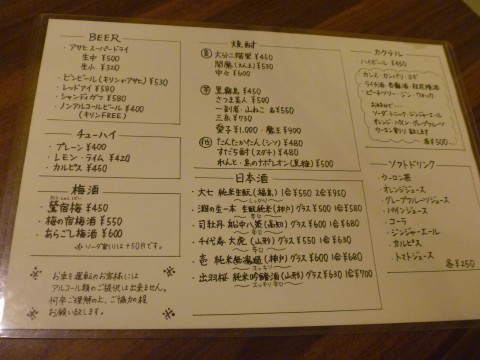 BEER
・アサヒスーパードライ
生中 ¥500
生小 ¥320
・ビンビール(キリン・アサヒ) ¥530
・レッドアイ ¥580
・シャンディガフ ¥580
・ノンアルコールビール ¥400
(キリンFREE)
チューハイ
・プレーン ¥400
・レモン・ライム ¥420
・カルピス ¥450
梅酒
鶯宿梅 ¥450
・梅の宿梅酒 ¥550
・あらごし梅酒 ¥600
ソーダ割りは+50円です。
お車を運転のお客様には
アルコール類のご提供は出来ません。
何卒ご理解の上、ご協力の程
お願い致します。
焼酎
麦 大分二階堂 ¥450
閻魔(えんま) ¥550
中々 ¥600
芋 黒霧島 ¥450
さつま美人 ¥500
一刻者・山ねこ 各¥550
三岳 ¥930
愛子 ¥1,000・魔王 ¥900
他 たんたかたん(シソ) ¥480
すだち酎(スダチ) ¥480
れんと・島のナポレオン(黒糖) ¥500
日本酒
・大七 純米生酛(福島) 1合¥550 2合¥950
しっかり
・灘の生一本 生酛純米(神戸) グラス¥500 1合¥580
辛口
・司牡丹 船中八策(高知) グラス¥600 1合¥680
辛口
・千代寿 大虎(山形) グラス¥550 1合¥630
辛口
・壱 純米(神戸) グラス¥600 1合¥630
スッキリ
・出羽桜 純米吟醸酒(山形) グラス¥630 1合¥700
スッキリ辛口
カクテル
・ハイボール ¥450
・カシス・カンパリ・
ライチ酒・杏露酒・桂花陳酒
・ピーチツリー・ジン・ウォッカ
お好みで…
ソーダ・トニック・ジンジャーエール
オレンジ・パイン・グレープフルーツ
ウーロン割り致します。
各¥500
ソフトドリンク
・ウーロン茶
・オレンジジュース
・グレープフルーツジュース
・パインジュース
・コーラ
・ジンジャーエール
・カルピス
・トマトジュース
各¥250